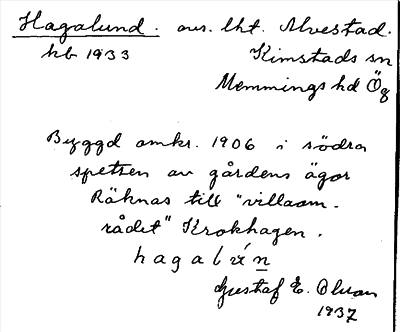 Hagalund. avs. lht. Alvestad.
hb 1933 Kimstads sn
Memmings hd Ög
Byggd omkr. 1906 i södra
spetsen av gårdens ägor
Räknas till "villaom-
rådet" Krokhagen.
hagalún
Gustaf E. Olson
1937